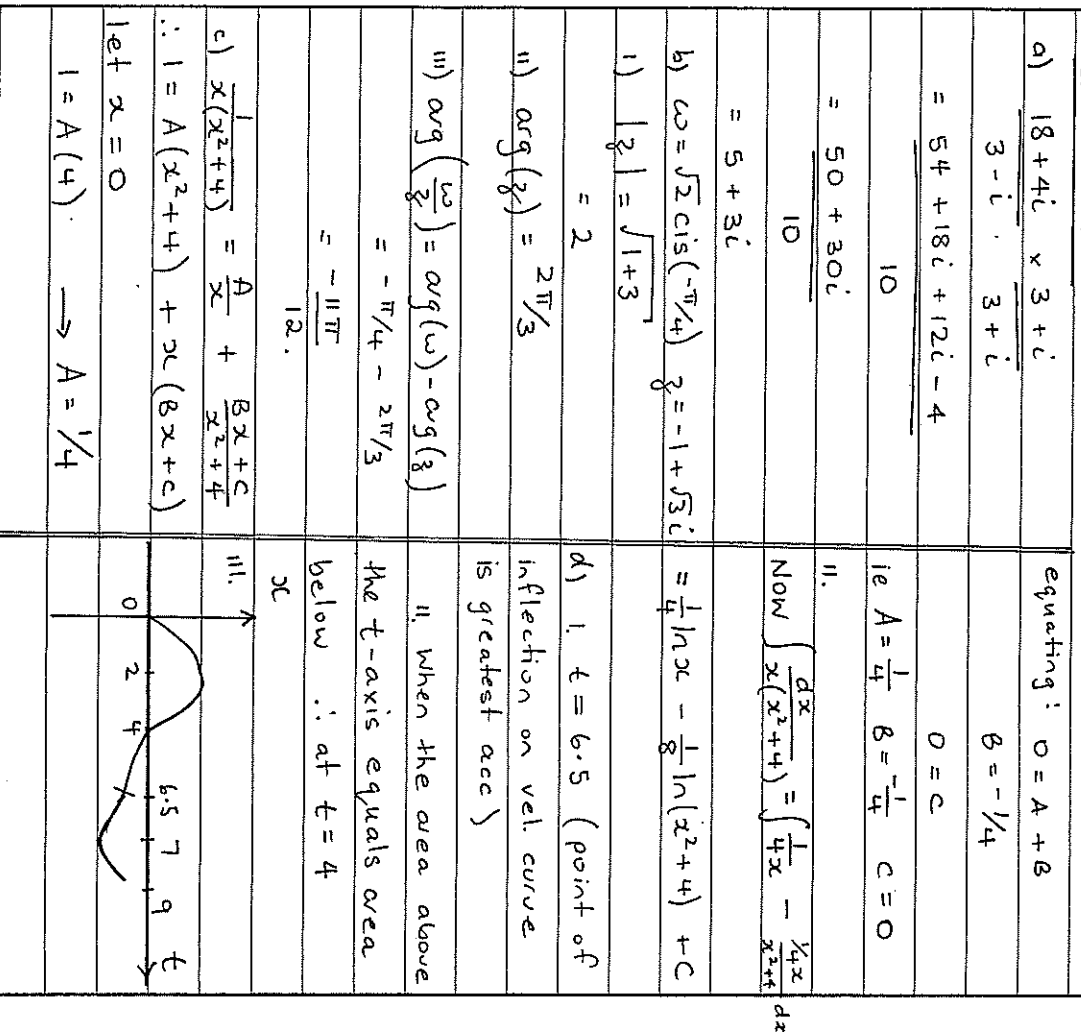 a) (18+4i)/(3-i) × (3+i)/(3+i)
= (54 + 18i + 12i - 4)/10
= (50 + 30i)/10
= 5 + 3i
b) ω = √2 cis(-π/4) z = -1 + √3i
i) |z| = √(1+3)
= 2
ii) arg(z) = 2π/3
iii) arg(ω/z) = arg(ω) - arg(z)
= -π/4 - 2π/3
= -11π/12.
c) 1/(x(x²+4)) = A/x + (Bx+c)/(x²+4)
∴ 1 = A(x²+4) + x(Bx+c)
let x = 0
1 = A(4). → A = 1/4
equating: 0 = A + B
B = -1/4
0 = c
ie A = 1/4 B = -1/4 c = 0
II.
Now ∫ dx/(x(x²+4)) = ∫ 1/(4x) - (1/4x)/(x²+4) dx
= 1/4 ln x - 1/8 ln(x²+4) + C
d) I. t = 6.5 (point of
inflection on vel. curve
is greatest acc)
II. When the area above
the t-axis equals area
below ∴ at t = 4
x
III.
0 2 4 6.5 7 9 t